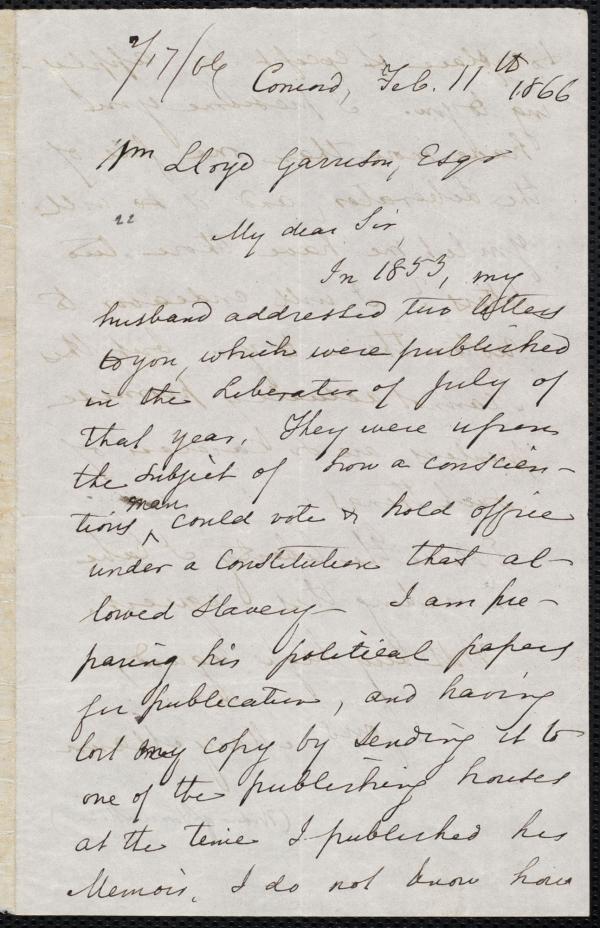 2/17/66
Concord, Feb. 11th 1866
Wm Lloyd Garrison, Esqr
22
My dear Sir
In 1853, my
husband addressed two letters
to you, which were published
in the Liberator of July of
that year. They were upon
the subject of how a conscien-
tious man could vote & hold office
under a Constitution that al-
lowed Slavery. I am pre-
paring his political papers
for publication, and having
lost my copy by sending it to
one of the publishing houses
at the time I published his
Memoir, I do not know how